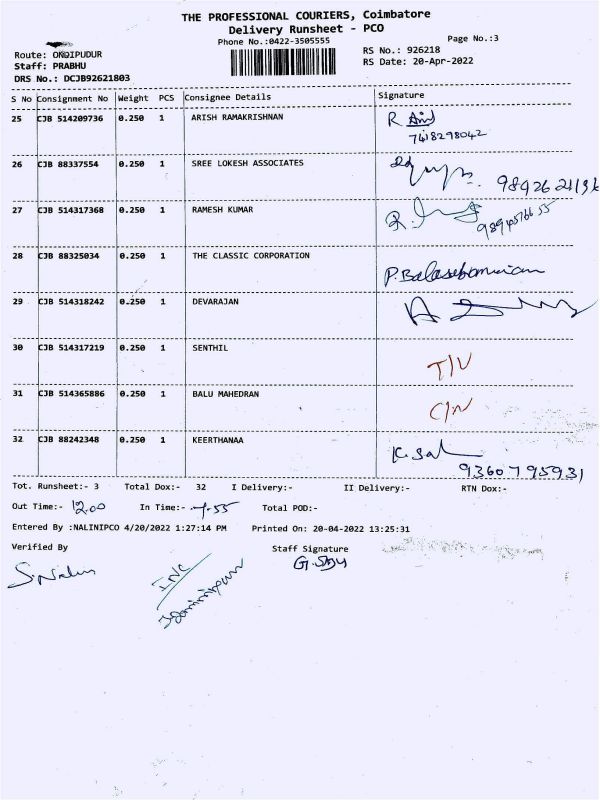 THE PROFESSIONAL COURIERS, Coimbatore
Delivery Runsheet - PCO
Phone No.:0422-3505555
Page No.:3
Route: ONDIPUDUR
RS No.: 926218
Staff: PRABHU
RS Date: 20-Apr-2022
DRS No.: DCJB92621803
S No Consignment No Weight PCS Consignee Details Signature
25 CJB 514209736 0.250 1 ARISH RAMAKRISHNAN R
7418298042
26 CJB 88337554 0.250 1 SREE LOKESH ASSOCIATES
27 CJB 514317368 0.250 1 RAMESH KUMAR
28 CJB 88325034 0.250 1 THE CLASSIC CORPORATION
P. Balasubramanian
29 CJB 514318242 0.250 1 DEVARAJAN
30 CJB 514317219 0.250 1 SENTHIL
31 CJB 514365886 0.250 1 BALU MAHEDRAN
32 CJB 88242348 0.250 1 KEERTHANAA
9360795931
Tot. Runsheet:- 3 Total Dox:- 32 I Delivery:- II Delivery:- RTN Dox:-
Out Time:- 12.00 In Time:- Total POD:-
Entered By :NALINIPCO 4/20/2022 1:27:14 PM Printed On: 20-04-2022 13:25:31
Verified By Staff Signature